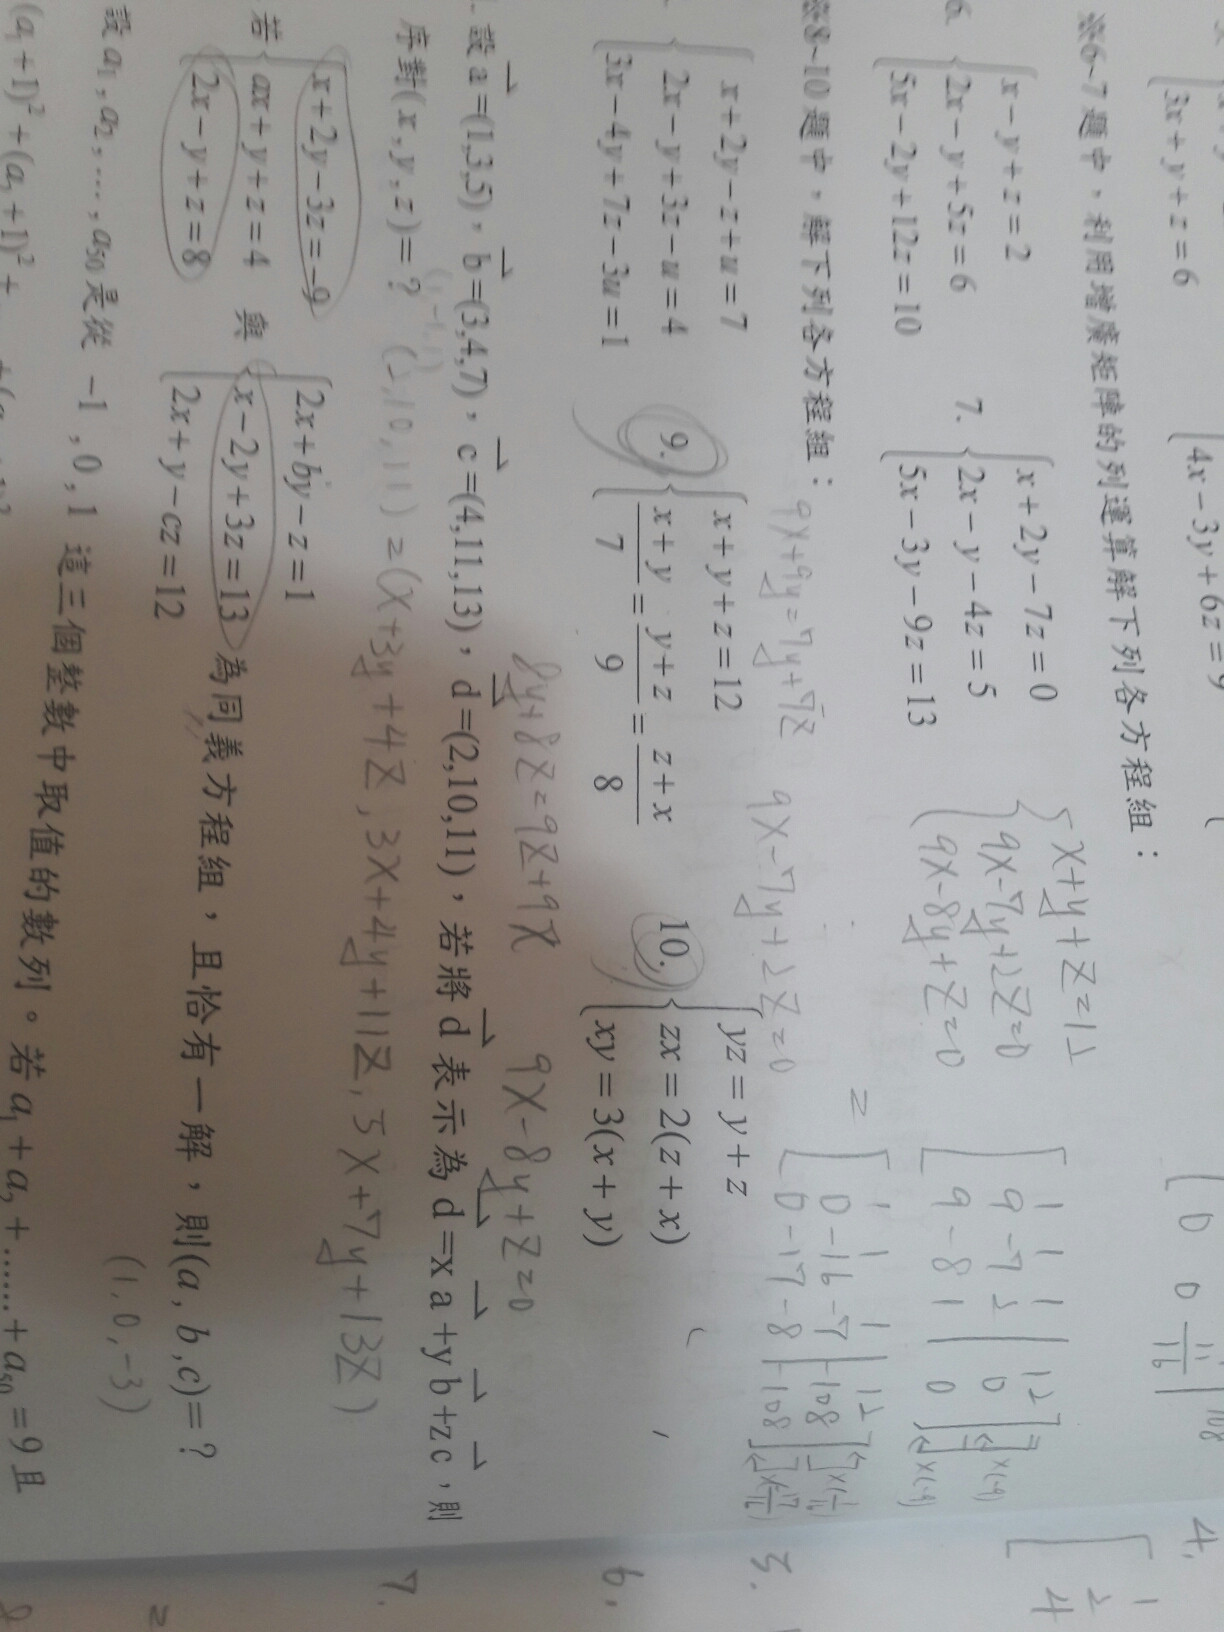 3x+y+z=6
4x-3y+6z=9
※6~7題中，利用增廣矩陣的列運算解下列各方程組：
6. x-y+z=2
2x-y+5z=6
5x-2y+12z=10
7. x+2y-7z=0
2x-y-4z=5
5x-3y-9z=13
x+y+z=12
9x-7y+2z=0
9x-8y+z=0
=
1 1 1 | 12
9 -7 2 | 0
9 -8 1 | 0
×(-9)
×(-9)
1 1 1 | 12
0 -16 -7 | -108
0 -17 -8 | -108
※8~10題中，解下列各方程組：
9x+9y=7y+7z
9x-7y+2z=0
x+2y-z+u=7
2x-y+3z-u=4
3x-4y+7z-3u=1
9. x+y+z=12
x+y/7=y+z/9=z+x/8
10. yz=y+z
zx=2(z+x)
xy=3(x+y)
8y+8z=9z+9x
9x-8y+z=0
設a=(1,3,5)，b=(3,4,7)，c=(4,11,13)，d=(2,10,11)，若將d表示為d=xa+yb+zc，則
序對(x,y,z)=?
(2,10,11)=(x+3y+4z,3x+4y+11z,5x+7y+13z)
若 x+2y-3z=-9
ax+y+z=4
2x-y+z=8
與 2x+by-z=1
x-2y+3z=13
2x+y-cz=12
為同義方程組，且恰有一解，則(a,b,c)=?
(1,0,-3)
設a₁,a₂,…,a₅₀是從-1,0,1這三個整數中取值的數列。若a₁+a₂+……+a₅₀=9且
4.
3.
6.
7.